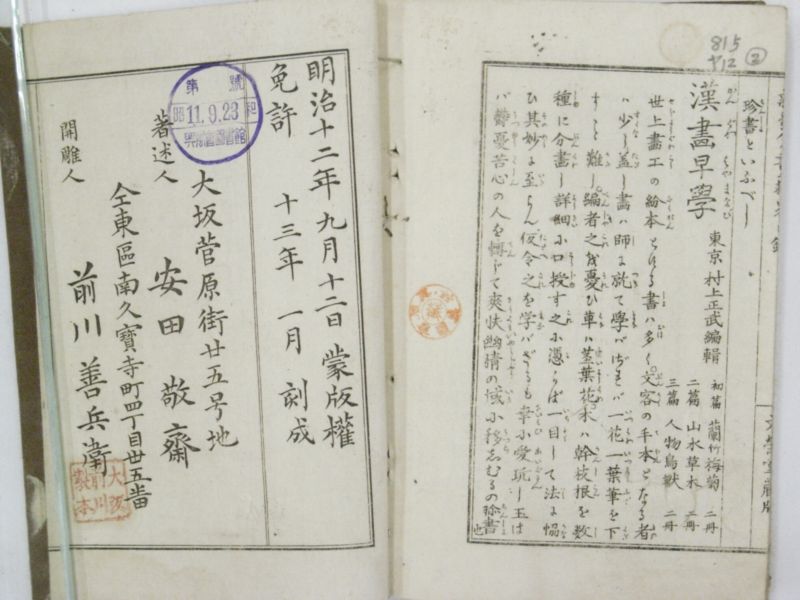 815
②
珍書といふべし
漢畫早学
東京 村上正武編輯
初篇 蘭竹梅菊 二冊
二篇 山水草木 二冊
三篇 人物鳥獣 二冊
世上畫工の粉本とする書ハ多く文客の手本となる者
ハ少し蓋し畫ハ師に就て學バざれバ一花一葉筆を下
すこと難し編者之を憂ひ草ハ莖葉花木ハ幹枝根を数
種に分畫し詳細小口授す之小憑らば一目して法に協
ひ其妙に至らん仮令之を学バざるも幸小愛玩し玉は
バ鬱憂苦心の人を轉じて爽快幽情の域小移志むるの珍書
也
明治十二年九月十二日 蒙版權
免許 十三年 一月 刻成
大坂菅原街廿五号地
著述人 安田敬齋
仝東區南久寶寺町四丁目廿五番
開雕人 前川善兵衛
第 號
昭 11.9.23 和
大阪
前川
製本